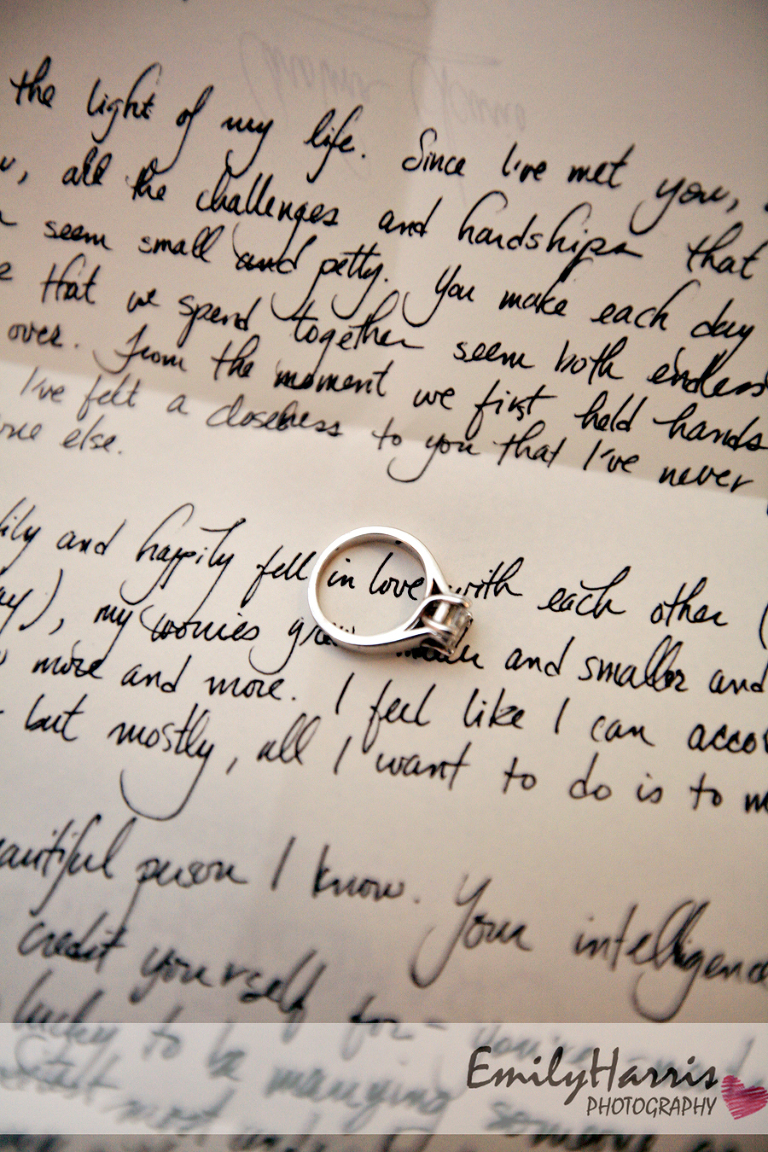 the light of my life. Since I've met you,
all the challenges and hardships that
seem small and petty. You make each day
that we spend together seem both endless
over. From the moment we first held hands
I've felt a closeness to you that I've never
else.
and happily fell in love with each other (
), my worries and smaller and
more and more. I feel like I can
but mostly, all I want to do is to m
person I know. Your intelligence
credit yourself for-
lucky to be marrying
EmilyHarris
PHOTOGRAPHY